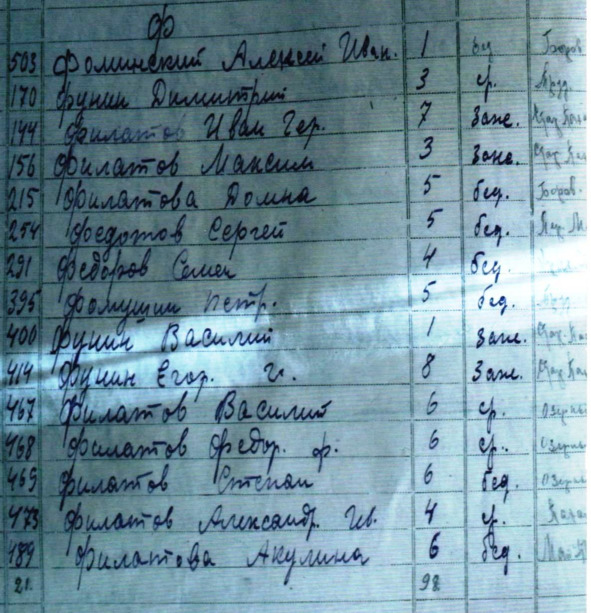 Ф
503 Фоминский Алексей Иван. 1 бед Боров.
170 Фунин Димитрий 3 ср.
144 Филатов Иван Гер. 7 заж.
156 Филатов Максим 3 заж.
215 Филатова Домна 5 бед. Боров.
254 Федотов Сергей 5 бед.
291 Федотов Семен 4 бед.
395 Фомушин Петр. 5 бед.
400 Фунин Василий 1 заж.
414 Фунин Егор. 8 заж.
467 Филатов Василий 6 ср.
468 Филатов Федор. ф. 6 ср.
469 Филатов Степан 6 бед.
473 Филатов Александр. 4 ср.
489 Филатова Акулина 6 бед.
21. 98